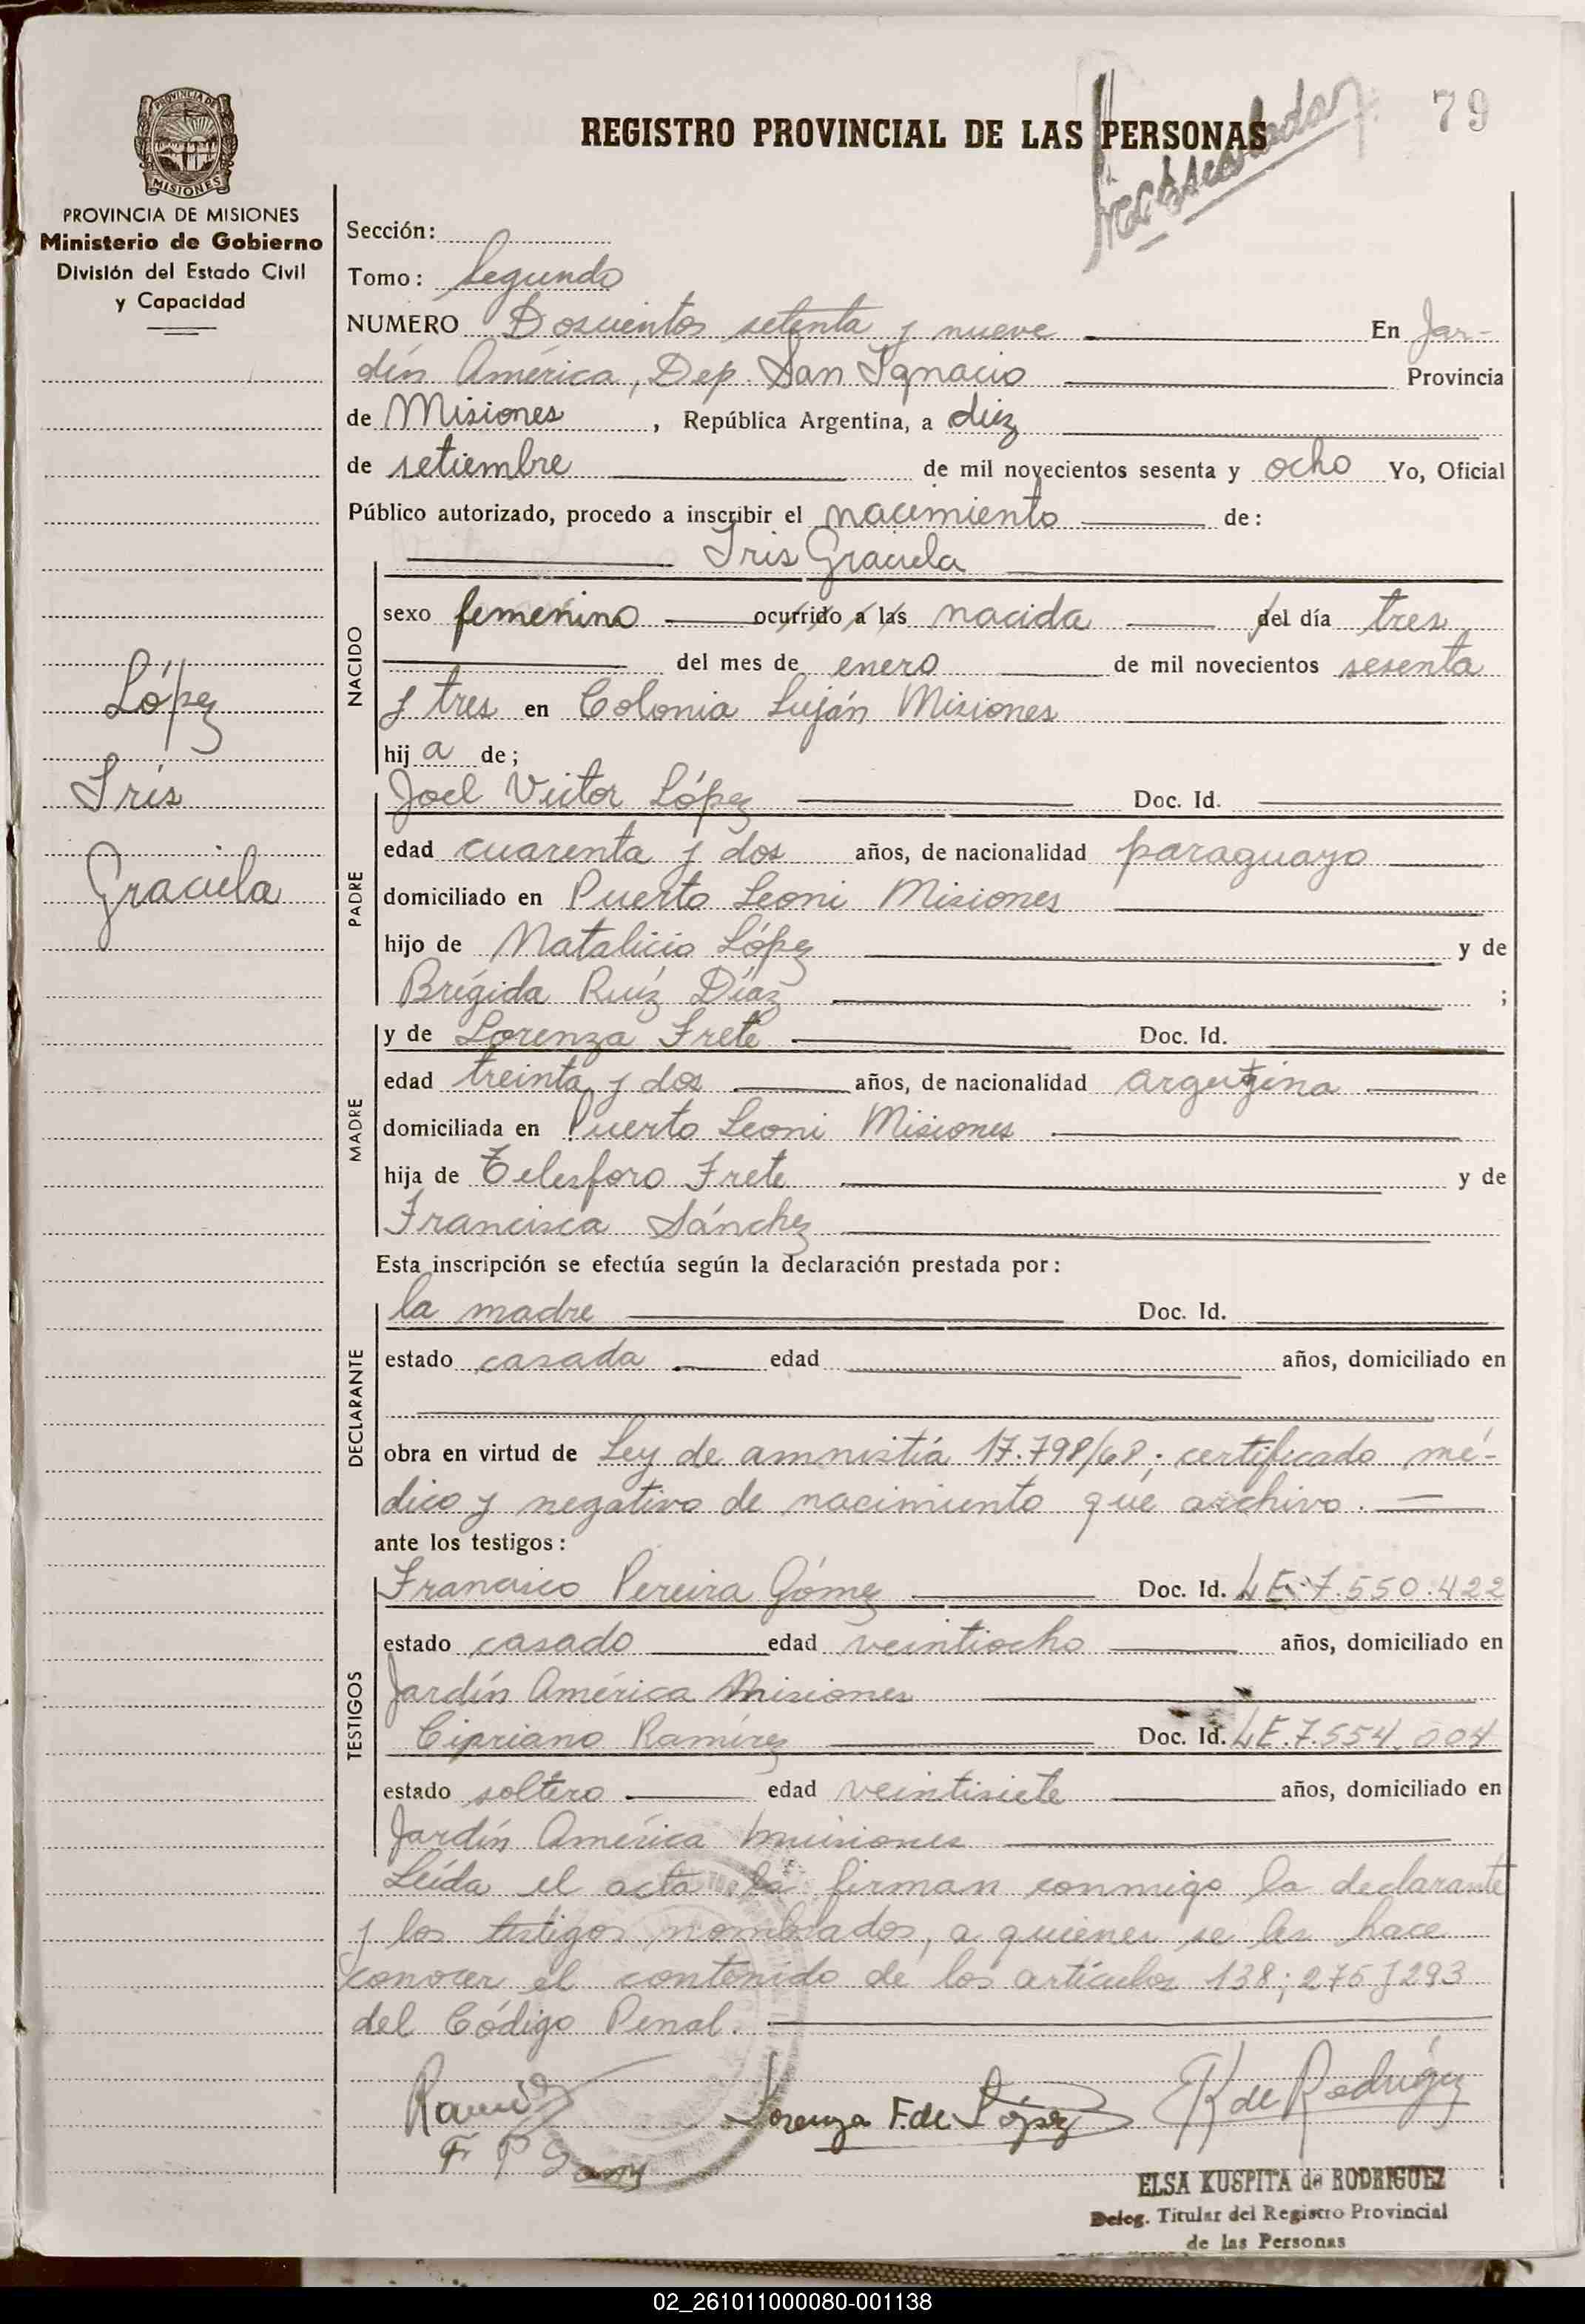 79
REGISTRO PROVINCIAL DE LAS PERSONAS
PROVINCIA DE MISIONES
PROVINCIA DE MISIONES
Ministerio de Gobierno
División del Estado Civil
y Capacidad
Sección:
Tomo: Segundo
NUMERO Doscientos setenta y nueve En Jar-
dín América, Dep. San Ignacio Provincia
de Misiones, República Argentina, a diez
de setiembre de mil novecientos sesenta y ocho Yo, Oficial
Público autorizado, procedo a inscribir el nacimiento de:
Iris Graciela
NACIDO
sexo femenino ocurrido a las nacida del día tres
del mes de enero de mil novecientos sesenta
y tres en Colonia Luján Misiones
hija de;
López
Iris
Graciela
PADRE
Joel Victor López Doc. Id.
edad cuarenta y dos años, de nacionalidad paraguayo
domiciliado en Puerto Leoni Misiones
hijo de Natalicio López y de
Brígida Ruíz Díaz ;
MADRE
y de Lorenza Frete Doc. Id.
edad treinta y dos años, de nacionalidad argentina
domiciliada en Puerto Leoni Misiones
hija de Telesforo Frete y de
Francisca Sánchez
Esta inscripción se efectúa según la declaración prestada por:
DECLARANTE
la madre Doc. Id.
estado casada edad años, domiciliado en
obra en virtud de Ley de amnistía 17.798/68; certificado mé-
dico y negativo de nacimiento que archivo.
ante los testigos:
TESTIGOS
Francisco Pereira Gómez Doc. Id. LE. 7.550.422
estado casado edad veintiocho años, domiciliado en
Jardín América Misiones
Cipriano Ramírez Doc. Id. LE. 7.554.004
estado soltero edad veintisiete años, domiciliado en
Jardín América Misiones
Leída el acta la firman conmigo la declarante
y los testigos nombrados, a quienes se les hace
conocer el contenido de los artículos 138; 275 y 293
del Código Penal.
Lorenza F. de López EK de Rodriguez
F P Gomez
ELSA KUSPITA de RODRIGUEZ
Deleg. Titular del Registro Provincial
de las Personas
02_261011000080-001138